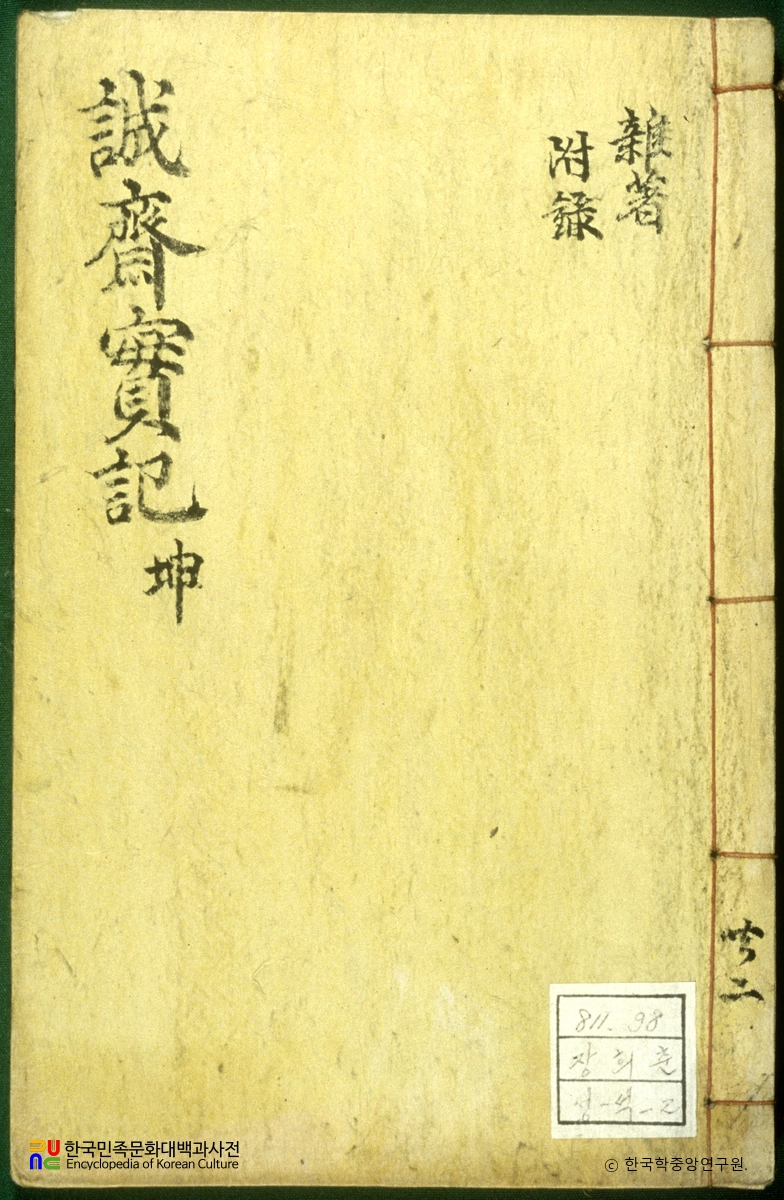 雜著
附錄
誠齋實記 坤
共二
811.98
장희춘
한국민족문화대백과사전
Encyclopedia of Korean Culture
ⓒ 한국학중앙연구원.